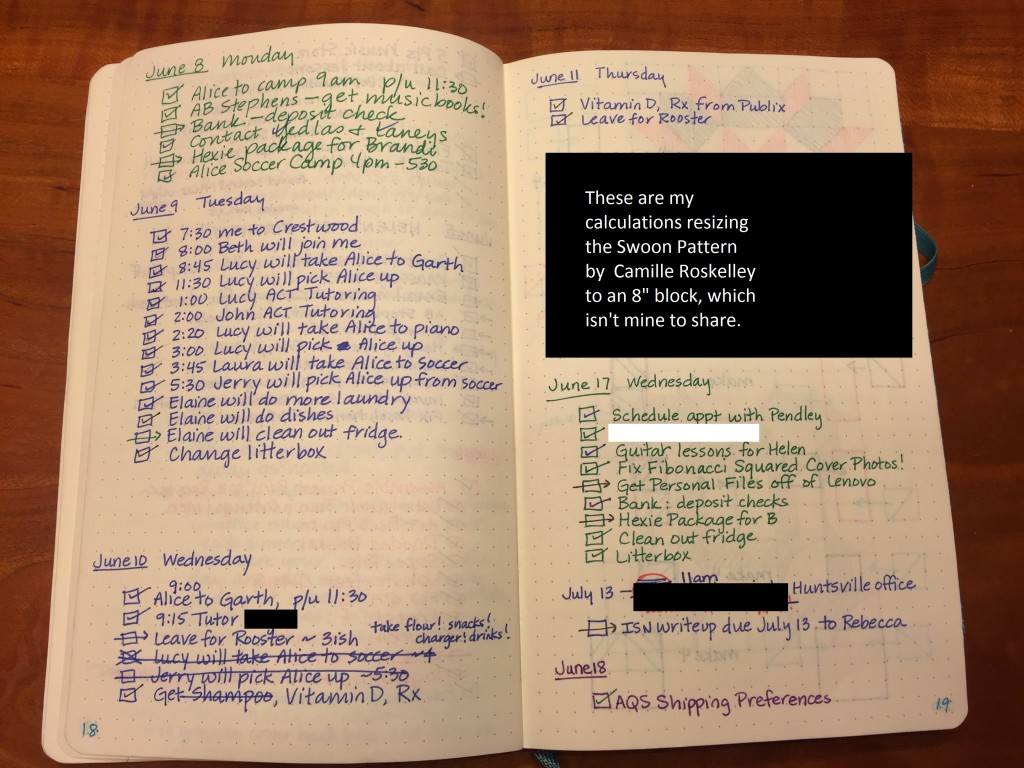 June 8 Monday
Alice to camp 9am p/u 11:30
AB Stephens – get music books!
Bank – deposit check
Contact Yedlas & Laneys
Hexie package for Brandi
Alice Soccer Camp 4pm – 530
June 9 Tuesday
7:30 me to Crestwood
8:00 Beth will join me
8:45 Lucy will take Alice to Garth
11:30 Lucy will pick Alice up
1:00 Lucy ACT Tutoring
2:00 John ACT Tutoring
2:20 Lucy will take Alice to piano
3:00 Lucy will pick Alice up
3:45 Laura will take Alice to soccer
5:30 Jerry will pick Alice up from soccer
Elaine will do more laundry
Elaine will do dishes
Elaine will clean out fridge.
Change litterbox
June 10 Wednesday
9:00
Alice to Garth, p/u 11:30
9:15 Tutor
Leave for Rooster ~ 3ish
take flour! snacks!
charger! drinks!
Lucy will take Alice to soccer ~4
Jerry will pick Alice up ~5:30
Get Shampoo, Vitamin D, Rx
18
June 11 Thursday
Vitamin D, Rx from Publix
Leave for Rooster
These are my
calculations resizing
the Swoon Pattern
by Camille Roskelley
to an 8" block, which
isn't mine to share.
June 17 Wednesday
Schedule appt with Pendley
Guitar lessons for Helen
Fix Fibonacci Squared Cover Photos!
Get Personal Files off of Lenovo
Bank: deposit checks
Hexie Package for B
Clean out fridge
Litterbox
11am
July 13 – Huntsville office
ISN writeup due July 13 to Rebecca
June 18
AQS Shipping Preferences
19